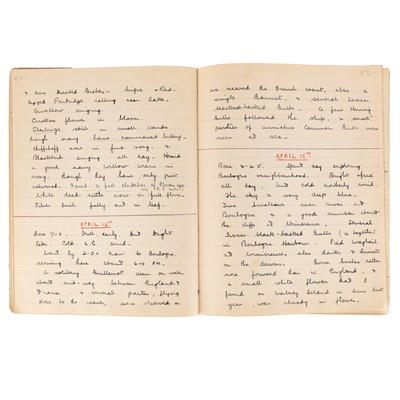 & two Crested Grebes. Snipe & Red-
legged Partridge calling near lake.
Swallow singing.
Cuckoo flower in bloom.
Starlings still in small bands
though many have commenced
Chiffchaff now in fine song, &
Blackbirds singing all day. Heard
a good many willow wrens in
song, though they have only just
returned.
White dead nettle now in full flower.
Lilac buds fully out in leaf.
APRIL 14th
Rose 7.0. Dull early, but bright
later. Cold wind.
Went by 2-20 train to Boulogne,
arriving here about 6-0 PM.
A solitary Guillemot seen on water
about mid-way between England &
France, & several parties, flying
close to the waves, were observed as
53
we neared the French coast, also a
single Gannet, & several Lesser
blacked-backed Gulls. A few Herring
Gulls followed the ship, & small
parties of immature Common Gulls were
seen at sea.
APRIL 15th
Rose 6.25. Spent day exploring
Boulogne neighbourhood. Bright spell
all day, but cold northerly wind.
The sky a very deep blue.
Two Swallows near river at
Boulogne & a good number about
the cliffs at Wimereux. Several
Lesser black-backed Gulls (6 together)
in Boulogne Harbour. Pied wagtail
at Wimereux, also Larks & Linnets
on the downs. Gorse bushes rather
more forward than in England, &
a small white flower that I
found on Walney Island in June last
year, was already in flower.